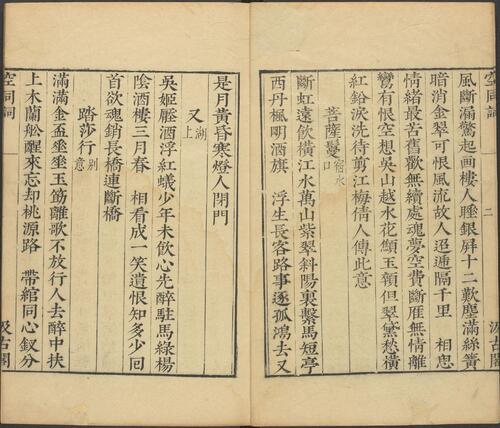 空同詞
二
汲古閣
風斷漏驚起画樓人睡銀屏十二歎塵滿絲簧
暗消金翠可恨風流故人迢逓隔千里　相思
情緒最苦舊歡無續處魂夢空費斷雁無情離
鸞有恨空想吳山越水花顦玉顇但翠黛愁橫
紅鉛淚洗待剪江梅倩人傳此意
菩薩鬘宿水口
斷虹遠飲橫江水萬山紫翠斜陽裏繫馬短亭
西丹楓明酒旗　浮生長客路事逐孤鴻去又
是月黃昏寒燈人閉門
又湖上
吳姬壓酒浮紅蟻少年未飲心先醉駐馬綠楊
陰酒樓三月春　相看成一笑遺恨知多少回
首欲魂銷長橋連斷橋
踏莎行別意
滿滿金盃垂垂玉筯離歌不放行人去醉中扶
上木蘭舩醒來忘却桃源路　帶綰同心釵分
空同詞
汲古閣